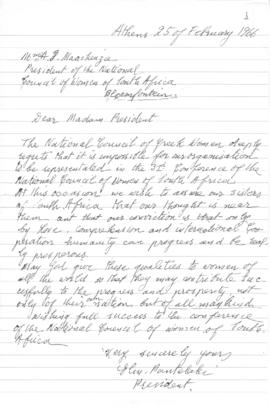 1
Athens 25 of February 1966
Mrs A. J. Mackenzie
President of the National
Council of Women of South Africa
Bloemfontein
Dear Madam President
The National Council of Greek Women deeply
regrets that it is impossible for our organisation
to be represented in the Conference of the
National Council of Women of South Africa
At this occasion we wish to assure our sisters
of South Africa that our thought is near
them and that our conviction is that only
by love, comprehension and international Coo-
peration humanity can progress and be really
prosperous.
May God give these qualities to women of
all the world so that they may contribute suc-
cessfully to the progress and prosperity not
only of their own nation but of all mankind.
Wishing full success to the conference
of the National Council of women of South
Africa
Very sincerely yours
President.